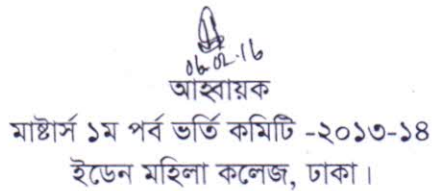 06.02.16
আহবায়ক
মাষ্টার্স ১ম পর্ব ভর্তি কমিটি -২০১৩-১৪
ইডেন মহিলা কলেজ, ঢাকা।